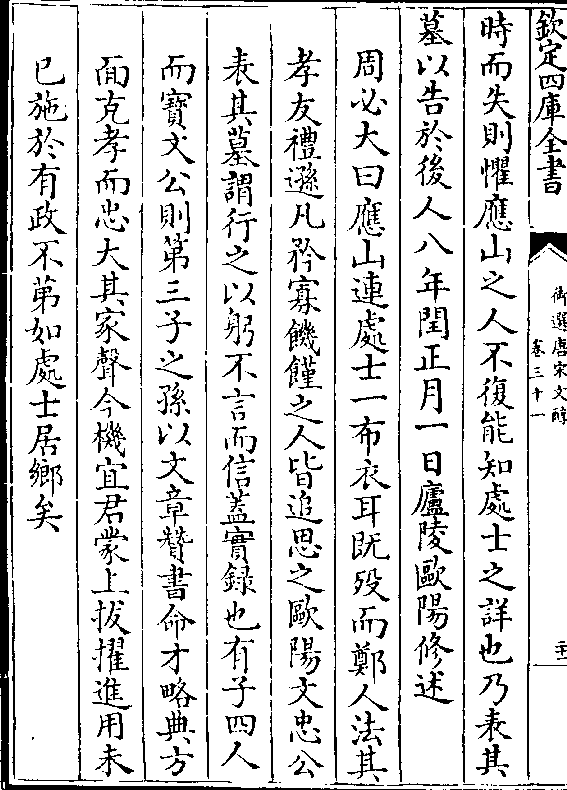 欽定四庫全書
御選唐宋文醇
卷三十一
時而失則懼應山之人不復能知處士之詳也乃表其
墓以告於後人八年閏正月一日廬陵歐陽修述
周必大曰應山連處士一布衣耳既歿而鄭人法其
孝友禮遜凡矜寡饑饉之人皆追思之歐陽文忠公
表其墓謂行之以躬不言而信蓋實録也有子四人
而寶文公則第三子之孫以文章贊書命才略典方
面克孝而忠大其家聲今機宜君蒙上拔擢進用未
已施於有政不苐如處士居鄉矣